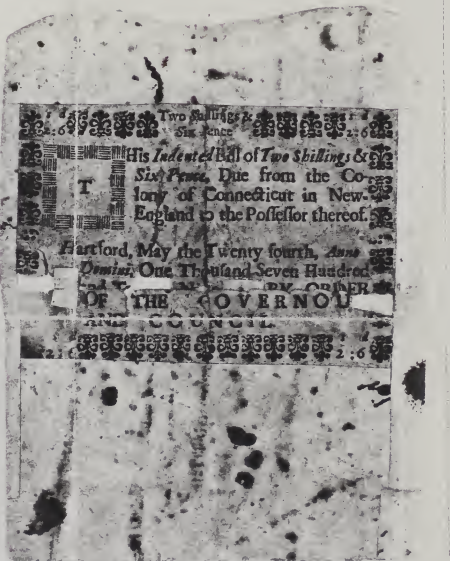 Two Shillings &
Six Pence
2:6 2:6
THis Indented Bill of Two Shillings &
Six Pence, Due from the Co-
lony of Connecticut in New-
England to the Poſſeſſor thereof.
Hartford, May the Twenty fourth, Anno
Domini, One Thouſand Seven Hundred
BY ORDER
OF THE GOVERNOU
AND COUNCIL
2:6 2:6